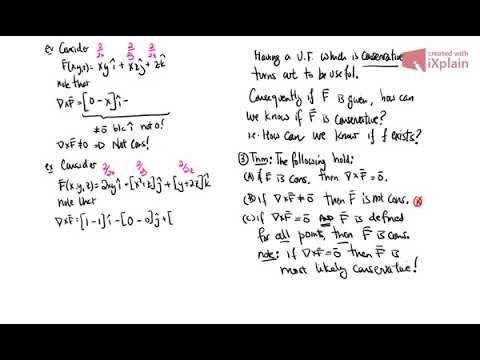 ex Consider ∂/∂x ∂/∂y ∂/∂z
F̄(x,y,z)=xy î + xz ĵ + zk̂
note that
∇×F̄=[0-x]î-
≠ō b/c î not 0!
∇×F̄≠0 ⇒ Not Cons!
ex Consider ∂/∂x ∂/∂y ∂/∂z
F̄(x,y,z)=2xy î+[x²+z]ĵ+[y+2z]k̂
note that
∇×F̄=[1-1]î-[0-0]ĵ+[
Having a V.F. which is conservative
turns out to be useful.
Consequently if F̄ is given, how can
we know if F̄ is conservative?
i.e. How can we know if f exists?
③ Thm: The following hold:
(A) if F̄ is cons. then ∇×F̄=ō.
(B) if ∇×F̄≠ō then F̄ is not cons.
(C) if ∇×F̄=ō AND F̄ is defined
for all points, then F̄ is cons.
note: if ∇×F̄=ō then F̄ is
most likely conservative!
created with
iXplain